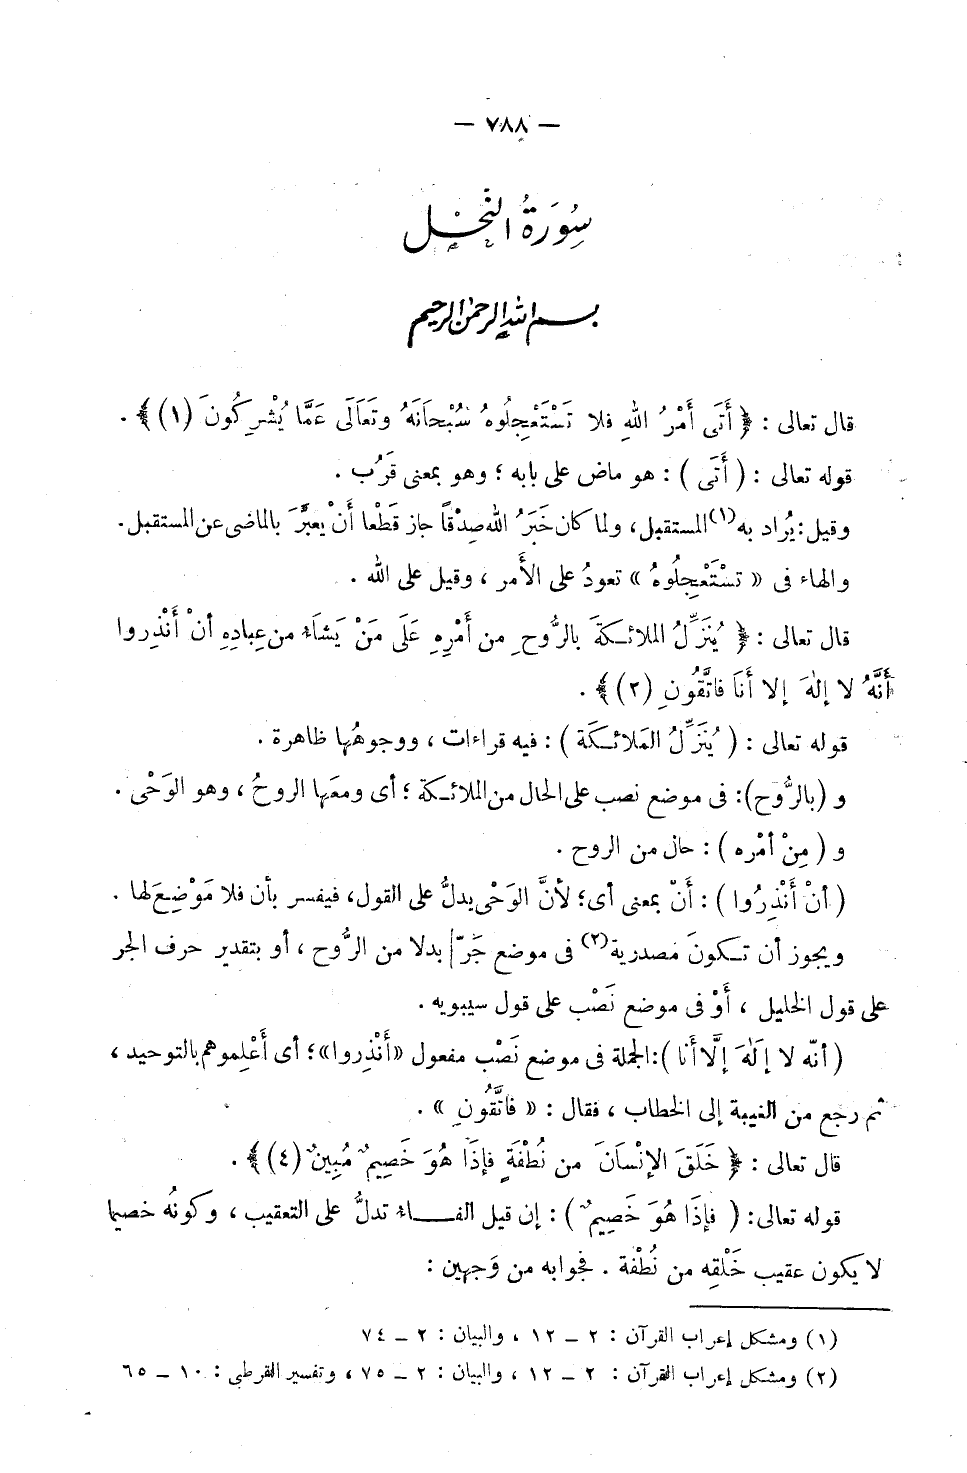 — ٧٨٨ —
سُورَةُ النَّحْل
بسم الله الرحمن الرحيم
قال تعالى : ﴿ أَتَى أَمْرُ اللهِ فلا تَسْتَعْجِلُوهُ سُبْحَانَهُ وتَعَالَى عَمَّا يُشْرِكُونَ (١) ﴾ .
قوله تعالى : ( أَتَى ) : هو ماض على بابه ؛ وهو بمعنى قَرُب .
وقيل : يُراد به(١) المستقبل ، ولما كان خَبَرُ الله صِدْقاً جاز قَطْعا أَنْ يعبَّرَ بالماضى عن المستقبل .
والهاء فى « تسْتَعْجِلُوهُ » تعودُ على الأَمر ، وقيل على الله .
قال تعالى : ﴿ يُنَزِّلُ الملائكةَ بالرُّوحِ من أَمْرِهِ عَلَى مَنْ يَشَاءُ من عِبادِهِ أنْ أَنْذِروا
أَنَّهُ لا إلٰهَ إلا أَنَا فاتَّقُونِ (٢) ﴾ .
قوله تعالى : ( يُنَزِّلُ المَلائكَة ) : فيه قراءات ، ووجوهُها ظاهرة .
و ( بالرُّوح ) : فى موضع نصب على الحال من الملائكة ؛ أى ومعَها الروحُ ، وهو الوَحْى .
و ( مِنْ أمْره ) : حال من الروح .
( أنْ أَنْذِرُوا ) : أَنْ بمعنى أى ؛ لأنَّ الوَحْى يدلُّ على القول ، فيفسر بأن فلا مَوْضِعَ لها .
ويجوز أن تكونَ مصدرية(٢) فى موضع جَرّ بدلا من الرُّوح ، أو بتقدير حرف الجر
على قول الخليل ، أَوْ فى موضع نَصْب على قول سيبويه .
( أنّه لا إِلَهَ إلَّا أَنا ) : الجملة فى موضع نَصْب مفعول « أَنْذِروا » ؛ أى أَعْلِموهم بالتوحيد ،
ثم رجع من الغيبة إلى الخطاب ، فقال : « فاتَّقُونِ » .
قال تعالى : ﴿ خَلَقَ الإنْسَانَ من نُطْفَةٍ فإذَا هُوَ خَصِيمٌ مُبِينٌ (٤) ﴾ .
قوله تعالى : ( فإذَا هُوَ خَصِيمٌ ) : إن قيل الفاء تدلُّ على التعقيب ، وكونُه خصيما
لا يكون عقيب خَلْقِه من نُطْفة . فجوابه من وَجهين :
(١) ومشكل إعراب القرآن : ٢ – ١٢ ، والبيان : ٢ – ٧٤
(٢) ومشكل إعراب القرآن : ٢ – ١٢ ، والبيان : ٢ – ٧٥ ، وتفسير القرطبى : ١٠ – ٦٥